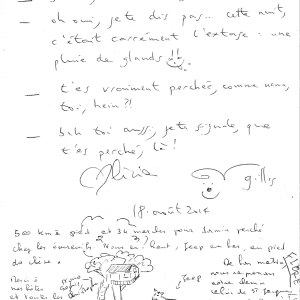 — oh oui, je te dis pas... cette nuit,
c'était carrément l'extase : une
pluie de glands !!
— t'es vraiment perchée, comme nana,
toi, hein ?!
— Bah toi aussi, je te signale, que
t'es perché, là !
Olivia gillis
18 août 2014
500 km à pied et 34 pour dormir perché
chez les écureuils Nous en haut, Jeep en bas, au pied
du chêne
De bon matin
nous
notre
Jeep
Merci à
nos hôtes
et toutes les